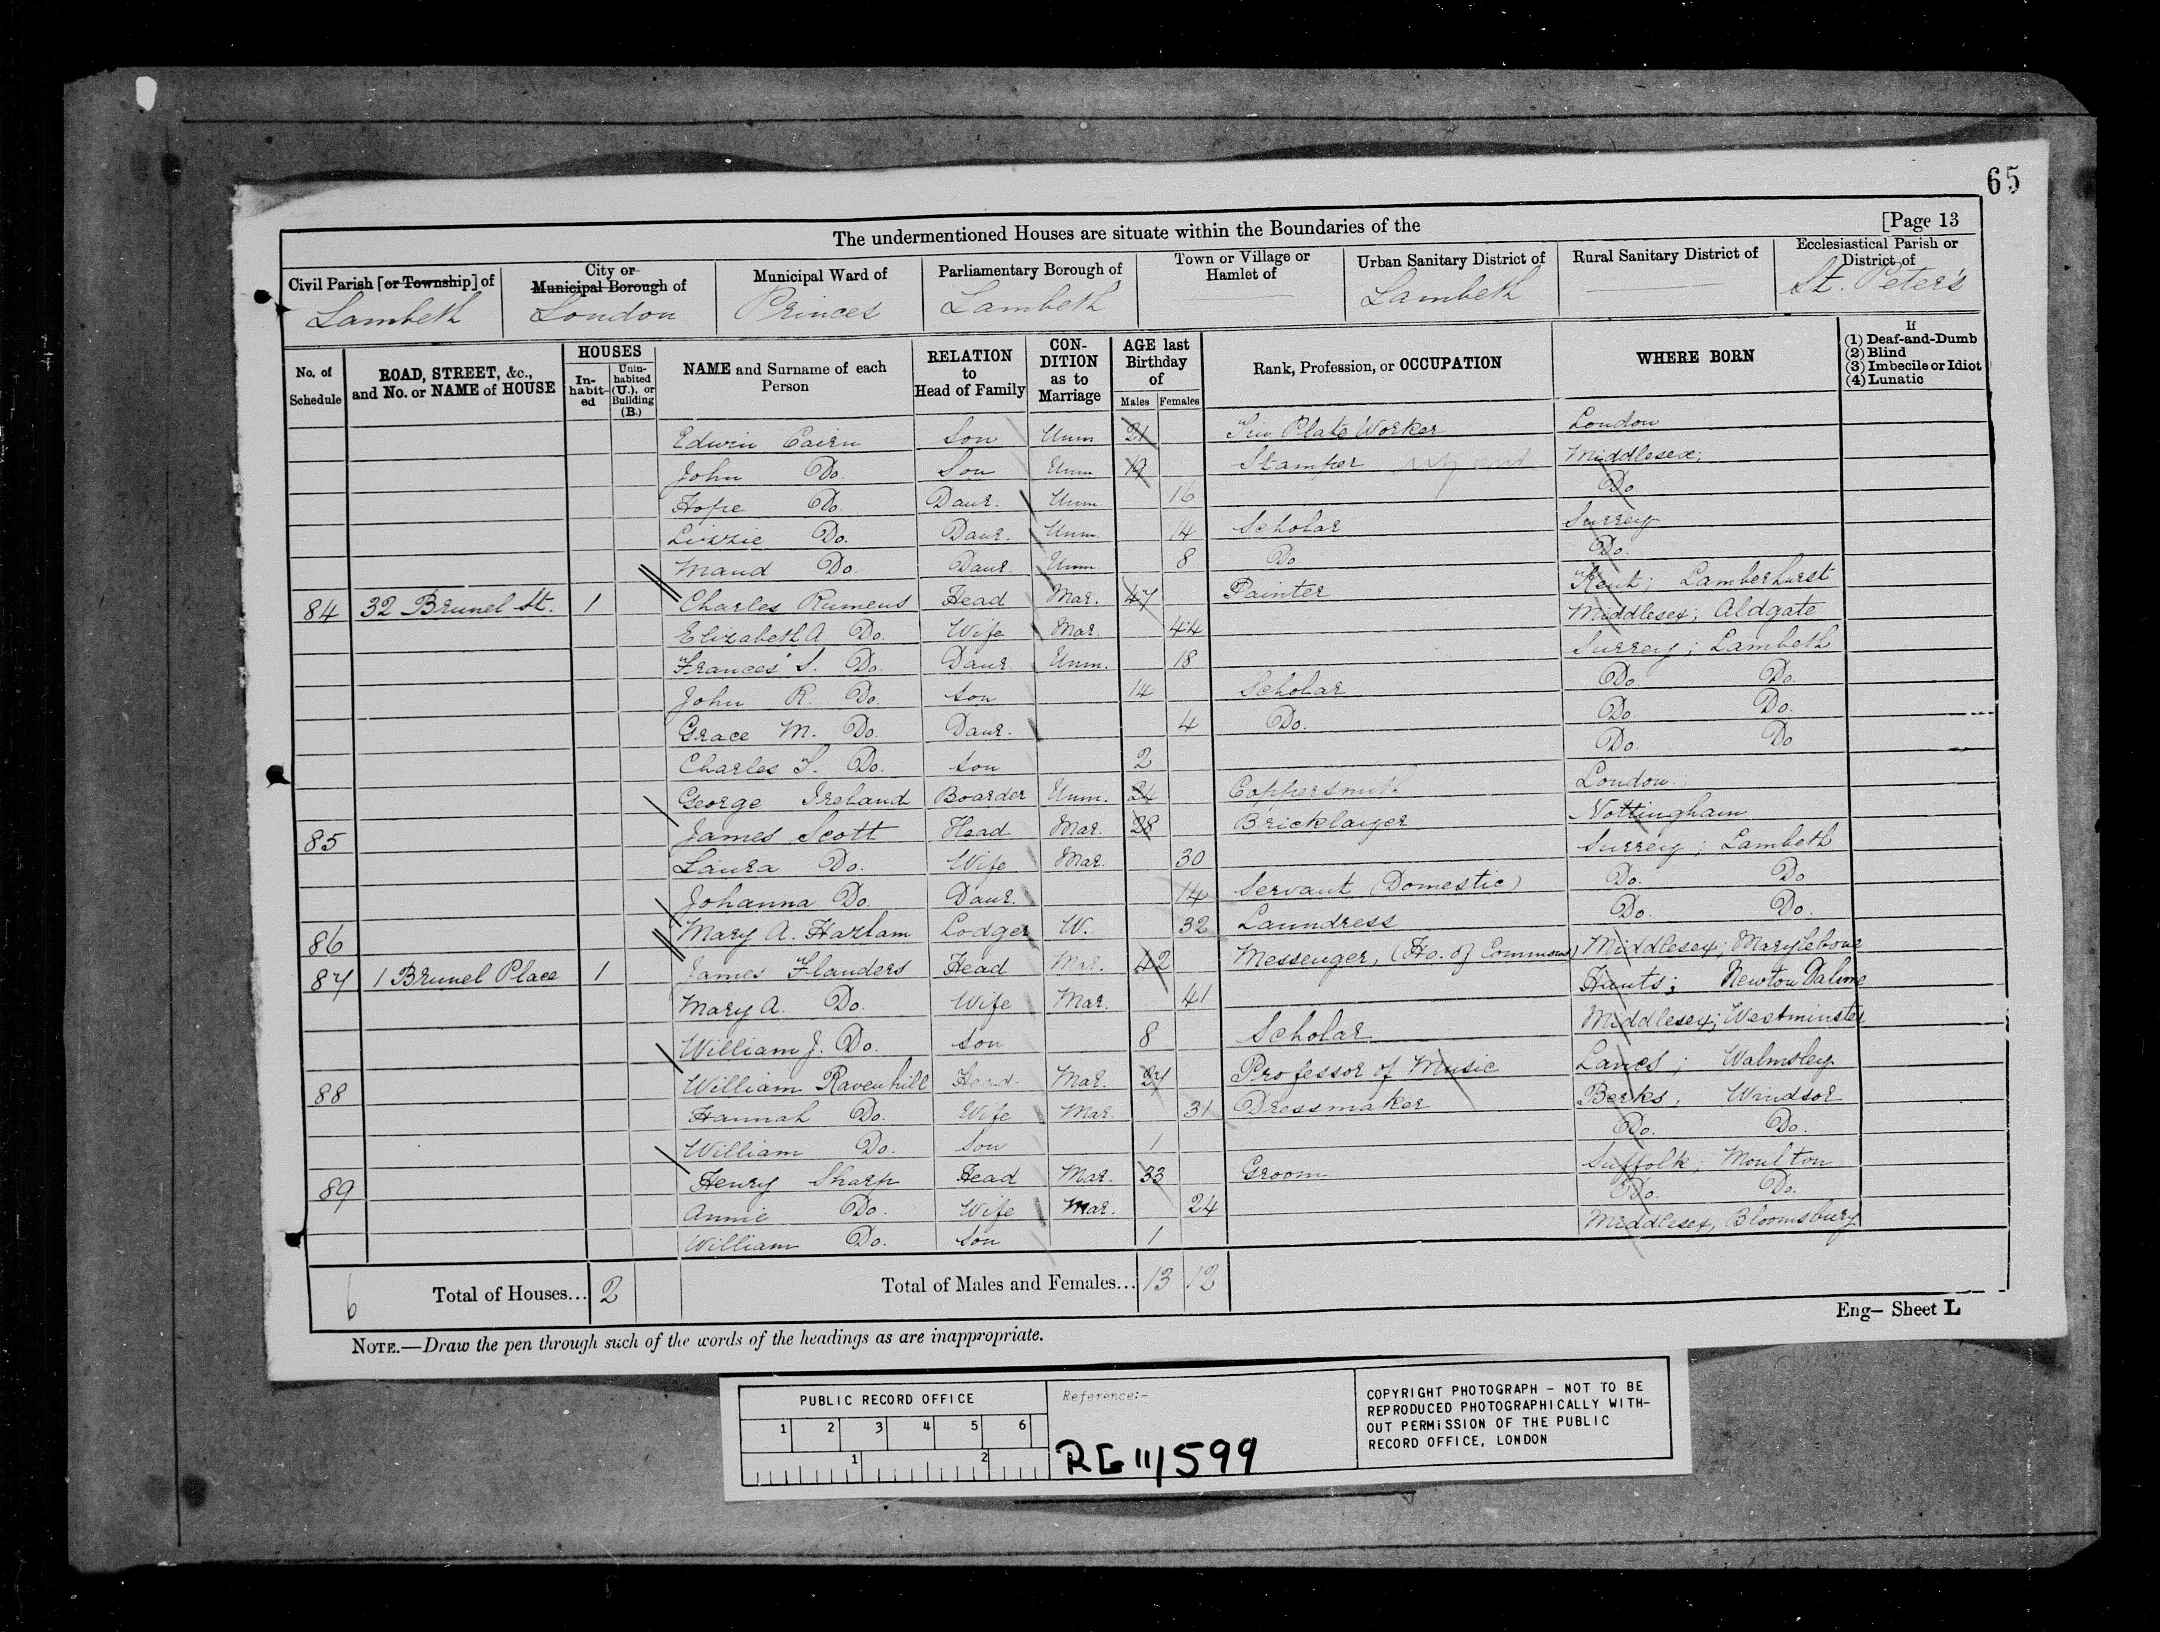 65
[Page 13
The undermentioned Houses are situate within the Boundaries of the
Civil Parish [or Township] of
Lambeth
City or Municipal Borough of
London
Municipal Ward of
Princes
Parliamentary Borough of
Lambeth
Town or Village or Hamlet of
Urban Sanitary District of
Lambeth
Rural Sanitary District of
Ecclesiastical Parish or District of
St. Peter's
No. of Schedule
ROAD, STREET, &c., and No. or NAME of HOUSE
HOUSES
In-habit-ed
Unin-habited (U.), or Building (B.)
NAME and Surname of each Person
RELATION to Head of Family
CON-DITION as to Marriage
AGE last Birthday of
Males Females
Rank, Profession, or OCCUPATION
WHERE BORN
If
(1) Deaf-and-Dumb
(2) Blind
(3) Imbecile or Idiot
(4) Lunatic
Edwin Cairn Son Unm 21 Tin Plate Worker London
John Do. Son Unm 19 Stamper Middlesex;
Hope Do. Daur. Unm 16 Do
Lizzie Do. Daur. Unm 14 Scholar Surrey
Maud Do. Daur. Unm 8 Do Do.
84 32 Brunel St. 1 Charles Rumens Head Mar. 47 Painter Kent; Lamberhurst
Elizabeth A Do. Wife Mar 44 Middlesex; Aldgate
Frances S. Do. Daur. Unm. 18 Surrey; Lambeth
John R. Do. Son 14 Scholar Do. Do.
Grace M. Do. Daur. 4 Do. Do. Do.
Charles S. Do. Son 2 Do. Do
George Ireland Boarder Unm. 24 Coppersmith London.
85 James Scott Head Mar. 28 Bricklaiyer Nottingham
Laura Do. Wife Mar. 30 Surrey; Lambeth
Johanna Do. Daur. 14 Servant (Domestic) Do. Do
86 Mary A. Harlam Lodger W. 32 Laundress Do. Do.
87 1 Brunel Place 1 James Flanders Head Mar. 42 Messenger, (Ho. of Commons) Middlesex; Marylebone
Mary A. Do. Wife Mar. 41 Hunts; Newton
William J. Do. Son 8 Scholar Middlesex; Westminster
88 William Ravenhill Head Mar. 27 Professor of Music Lancs; Walmsley
Hannah Do. Wife Mar. 31 Dressmaker Berks; Windsor
William Do. Son 1 Do. Do.
89 Henry Sharp Head Mar. 33 Groom Suffolk; Moulton
Annie Do. Wife Mar. 24 Do. Do.
William Do. Son 1 Middlesex, Bloomsbury
6 Total of Houses... 2 Total of Males and Females... 13 12
Eng— Sheet L
NOTE.—Draw the pen through such of the words of the headings as are inappropriate.
PUBLIC RECORD OFFICE
1 2 3 4 5 6
1 2
Reference:-
RG 11/599
COPYRIGHT PHOTOGRAPH – NOT TO BE
REPRODUCED PHOTOGRAPHICALLY WITH-
OUT PERMISSION OF THE PUBLIC
RECORD OFFICE, LONDON